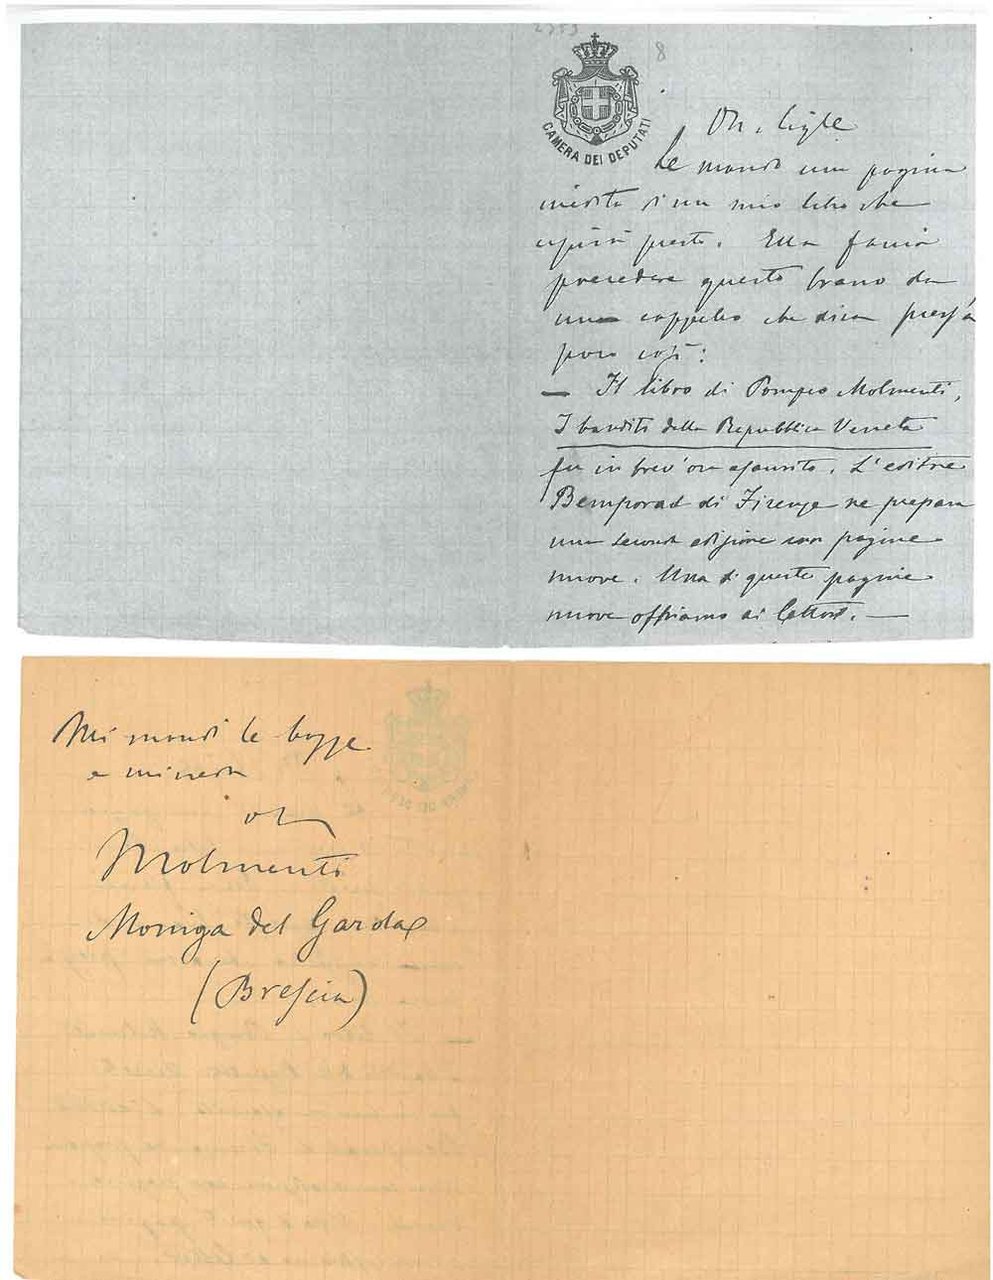 2353
8
CAMERA DEI DEPUTATI
On.
Le mando una pagina
inedita d'un mio libro che
uscirà presto. Ella faccia
precedere questo brano da
un cappello che dica press'a
poco così:
— Il libro di Pompeo Molmenti,
I banditi della Repubblica Veneta
fu in brev'ora esaurito. L'editore
Bemporad di Firenze ne prepara
una seconda edizione con pagine
nuove. Una di queste pagine
nuove offriamo ai lettori. —
Mi mandi le bozze
Molmenti
Moniga del Garda
(Brescia)